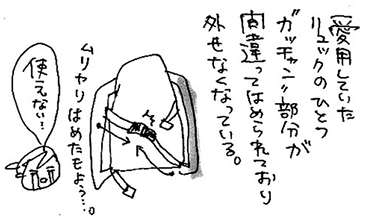 愛用していた
リュックのひとつ
ガッチャン!!部分が
間違ってはめられており
外せなくなっている。
ムリヤリはめたもよう…。
使えない…